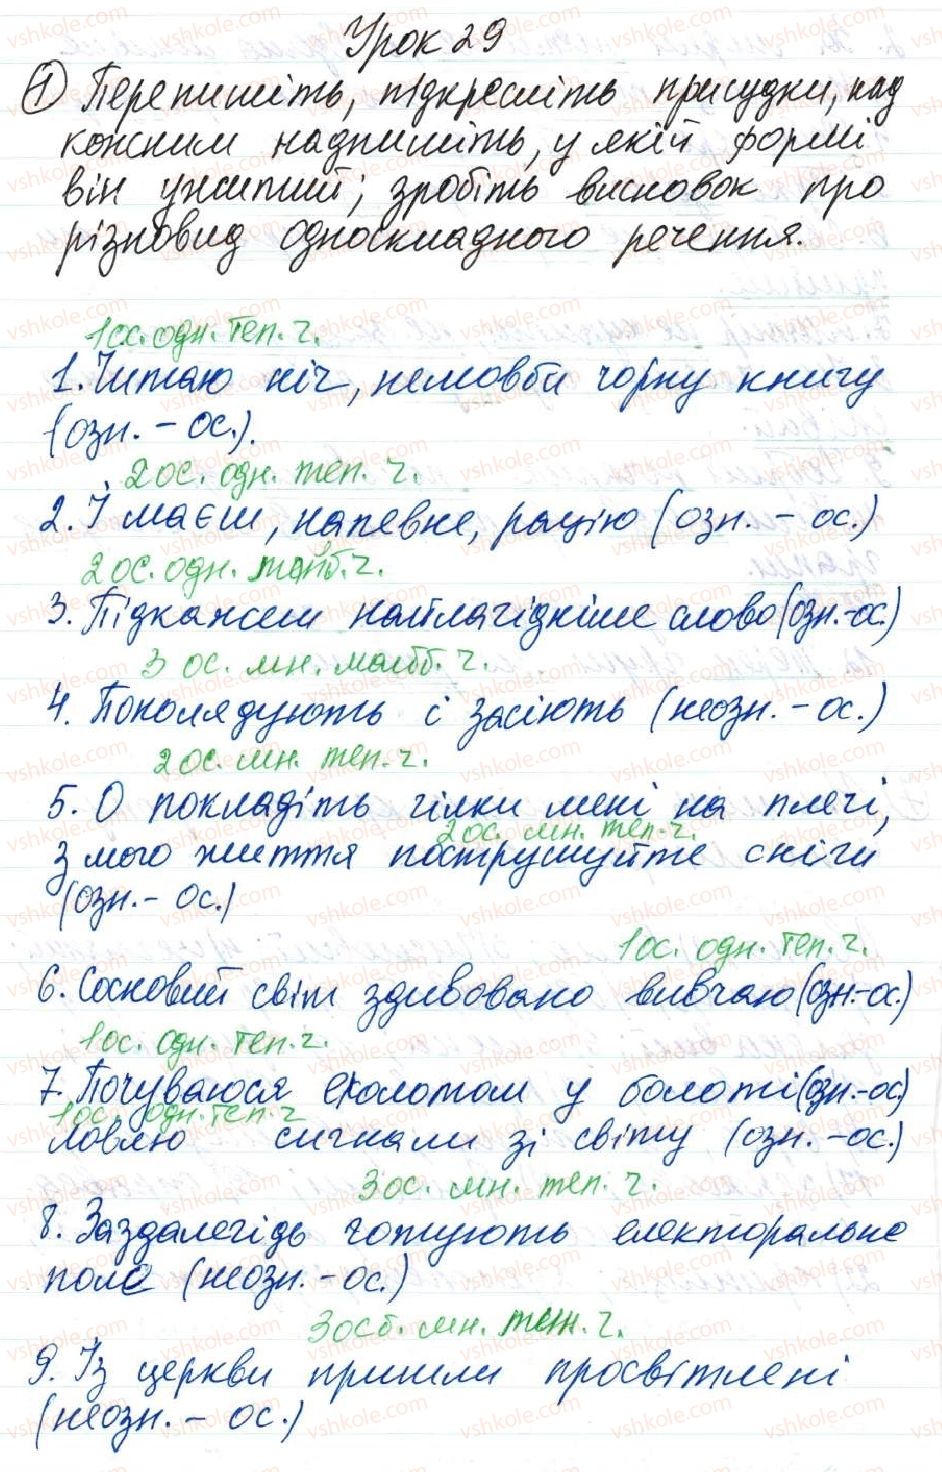 Урок 29
① Перепишіть, підкресліть присудки, над
кожним надпишіть, у якій формі
він ужитий; зробіть висновок про
різновид односкладного речення.
1 ос. одн. теп. ч.
1. Читаю ніч, немовби чорну книгу
(озн. – ос.).
2 ос. одн. теп. ч.
2. І маєш, напевне, рацію (озн. – ос.)
2 ос. одн. майб. ч.
3. Підкажеш найлагідніше слово (озн.-ос.)
3 ос. мн. майб. ч.
4. Поколядують і засіють (неозн. – ос.)
2 ос. мн. теп. ч.
5. О покладіть гілки мені на плечі,
2 ос. мн. теп. ч.
з мого життя пострушуйте сніги
(озн. – ос.)
1 ос. одн. теп. ч.
6. Сосновий світ здивовано вивчаю (озн.-ос.)
1 ос. одн. теп. ч.
7. Почуваюся ехолотом у болоті (озн.-ос.)
1 ос. одн. теп. ч
ловлю сигнали зі світу (озн. – ос.)
3 ос. мн. теп. ч.
8. Заздалегідь готують електоральне
поле (неозн. – ос.)
3 осб. мн. теп. ч.
9. Із церкви прийшли просвітлені
(неозн. – ос.)